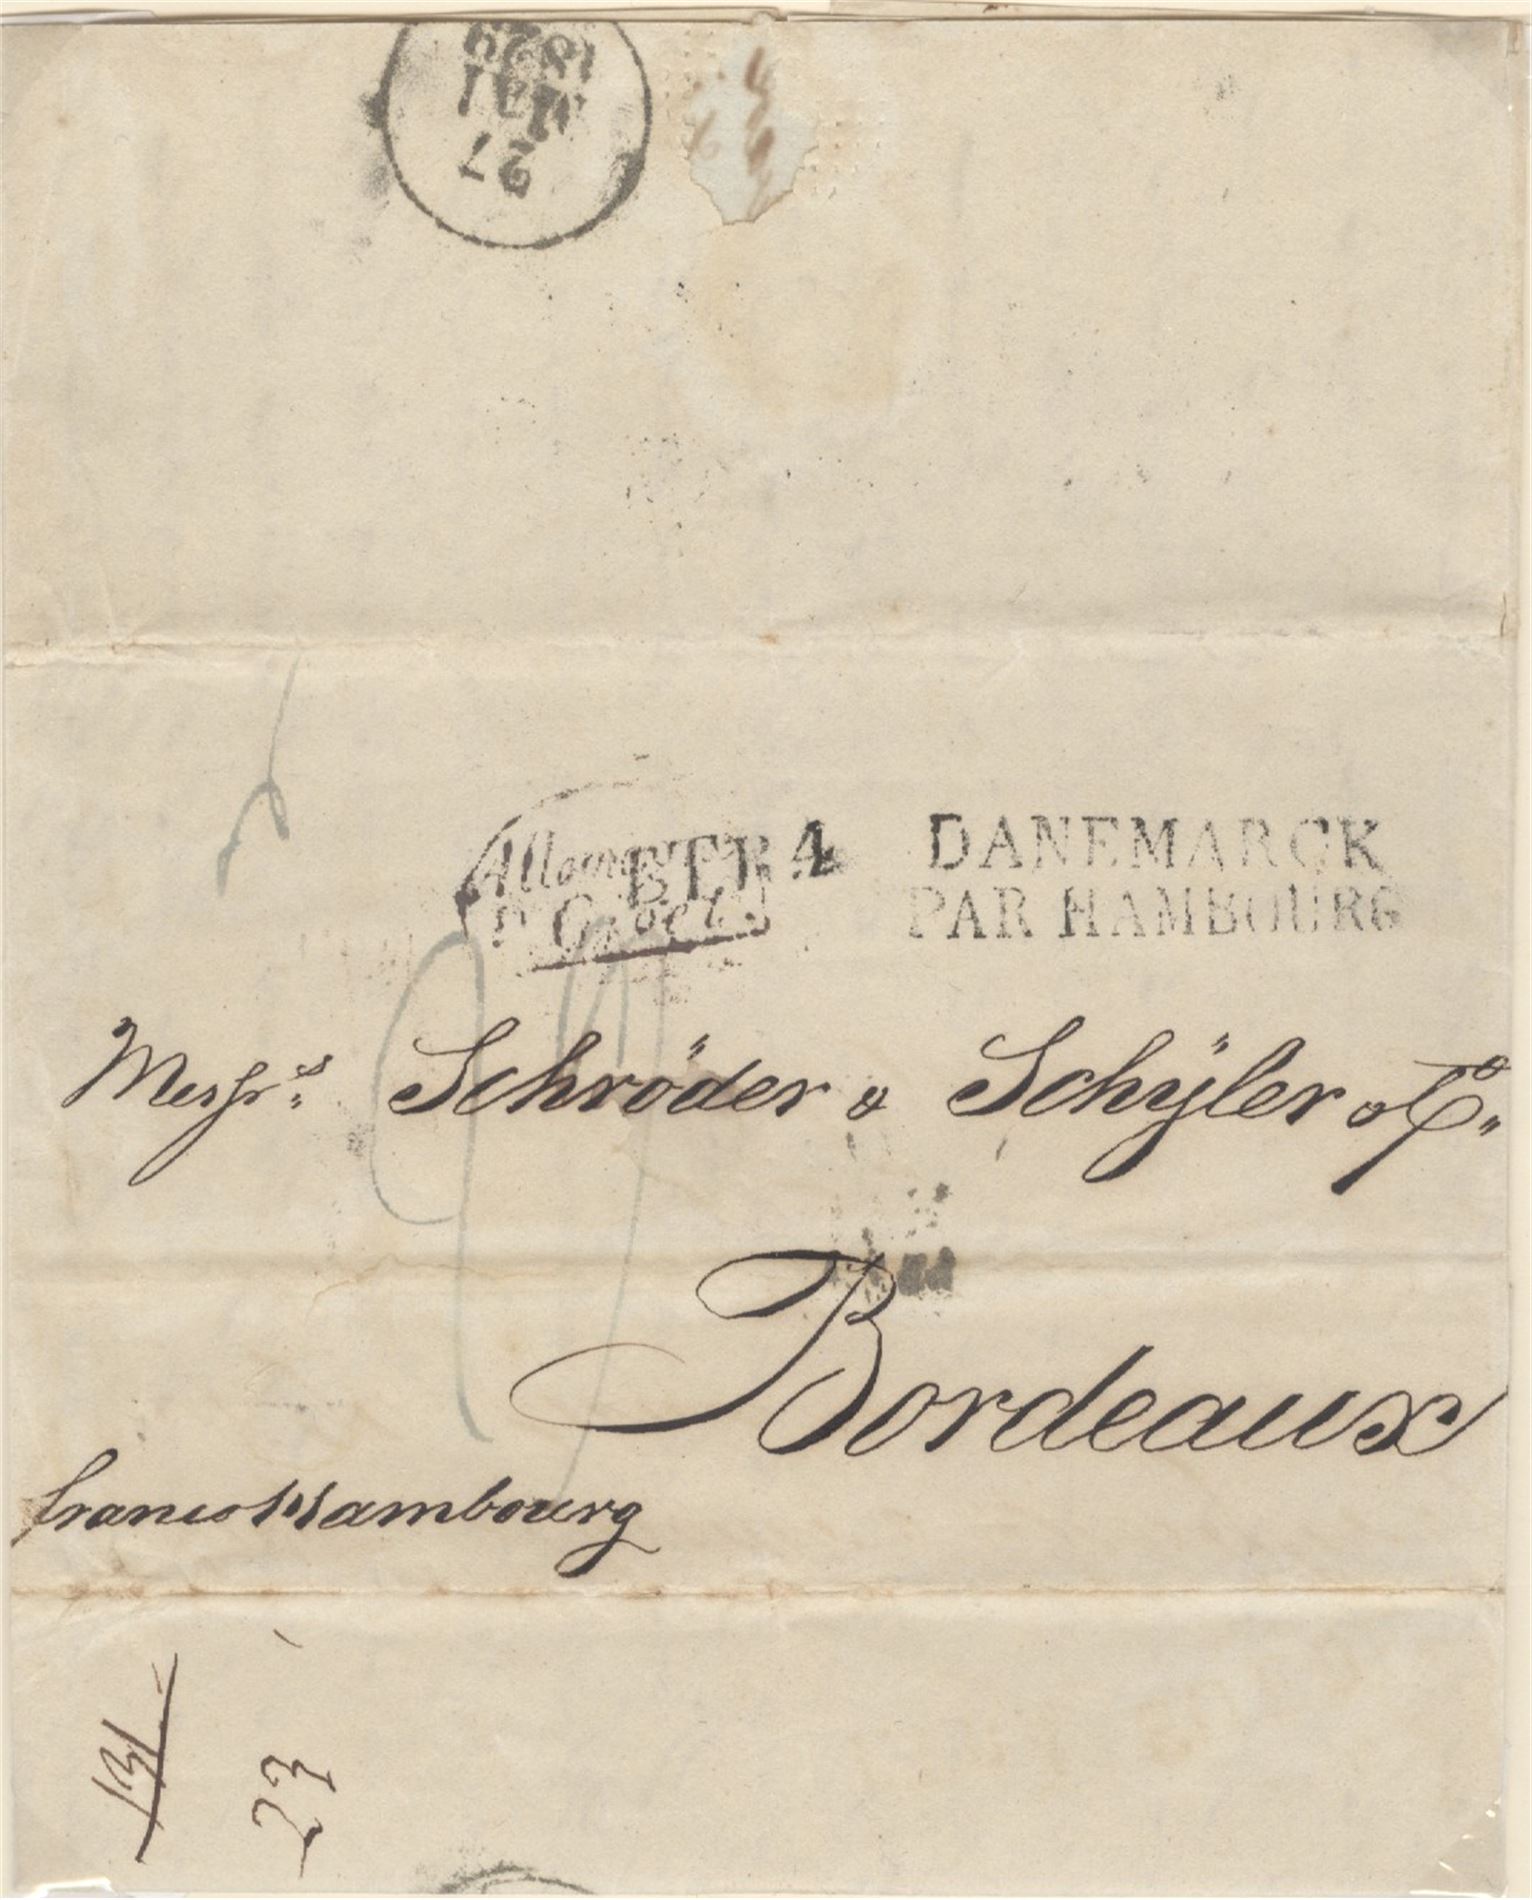 27
MAI
1829
DANEMARCK
PAR HAMBOURG
4
Messrs Schröder & Schÿler & Co
Bordeaux
franco Hambourg
23